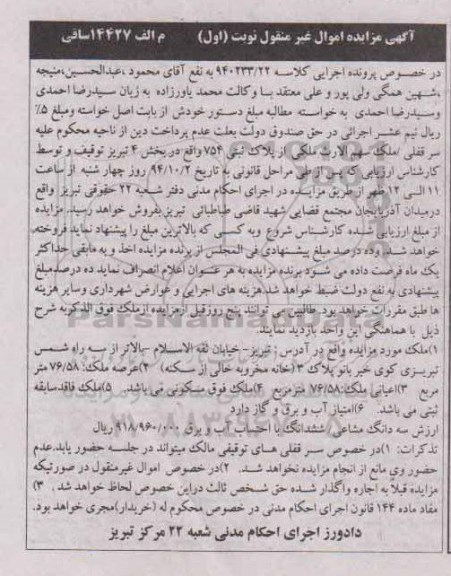 آگهی مزایده اموال غیر منقول نوبت (اول) م الف ۱۴۴۲۷ساقی
در خصوص پرونده اجرایی کلاسه ۹۴۰۲۳۳/۲۲ به نفع آقای محمود ،عبدالحسین،منیجه
،شهین همگی ولی پور و علی معتقد با وکالت محمد یاورزاده به زیان سیدرضا احمدی
وسیدرضا احمدی به خواسته مطالبه مبلغ دستور خودش از بابت اصل خواسته ومبلغ ۵%
ریال نیم عشر اجرائی در حق صندوق دولت بعلت عدم پرداخت دین از ناحیه محکوم علیه
سر قفلی /ملک سهم الارث ملکی از پلاک ثبتی ۷۵۴ واقع در بخش ۴ تبریز توقیف و توسط
کارشناس ارزیابی که پس از طی مراحل قانونی به تاریخ ۹۴/۱۰/۲ روز چهار شنبه از ساعت
۱۱ الی ۱۲ ظهر از طریق مزایده در اجرای احکام مدنی دفتر شعبه ۲۲ حقوقی تبریز واقع
درمیدان آذربایجان مجتمع قضایی شهید قاضی طباطبائی تبریز بفروش خواهد رسید. مزایده
از مبلغ ارزیابی شده کارشناس شروع وبه کسی که بالاترین مبلغ را پیشنهاد نماید فروخته
خواهد شد. وده درصد مبلغ پیشنهادی فی المجلس از برنده مزایده اخذ و به مابقی حداکثر
یک ماه فرصت داده می شود برنده مزایده به هر عنوان اعلام انصراف نماید ده درصدمبلغ
پیشنهادی به نفع دولت ضبط خواهد شد.هزینه های اجرایی و عوارض شهرداری وسایر هزینه
ها طبق مقررات خواهد بود. طالبین می توانند پنج روزقبل ازمزایده ازملک فوق الذکربه شرح
ذیل با هماهنگی این واحد بازدید نمایند.
۱)ملک مورد مزایده واقع در آدرس : تبریز- خیابان ثقه الاسلام –بالاتر از سه راه شمس
تبریزی کوی خیر بانو پلاک ۳ (خانه مخروبه خالی از سکنه) ۲)عرصه ملک: ۷۶/۵۸ متر
مربع ۳)اعیانی ملک: ۷۶/۵۸ مترمربع ۴)ملک فوق مسکونی می باشد. ۵)ملک فاقدسابقه
ثبتی می باشد. ۶)امتیاز آب و برق و گاز دارد
ارزش سه دانگ مشاعی ششدانگ با احتساب آب و برق ۹۱۸/۹۶۰/۰۰۰ ریال
تذکرات: ۱)در خصوص سر قفلی های توقیفی مالک میتواند در جلسه حضور یابد.عدم
حضور وی مانع از انجام مزایده نخواهد شد. ۲)در خصوص اموال غیرمنقول در صورتیکه
مزایده قبلاً به اجاره واگذار شده حق شخص ثالث دراین خصوص لحاظ خواهد شد . ۳)
مفاد ماده ۱۴۴ قانون اجرای احکام مدنی در خصوص محکوم له (خریدار)مجری خواهد بود.
دادورز اجرای احکام مدنی شعبه ۲۲ مرکز تبریز